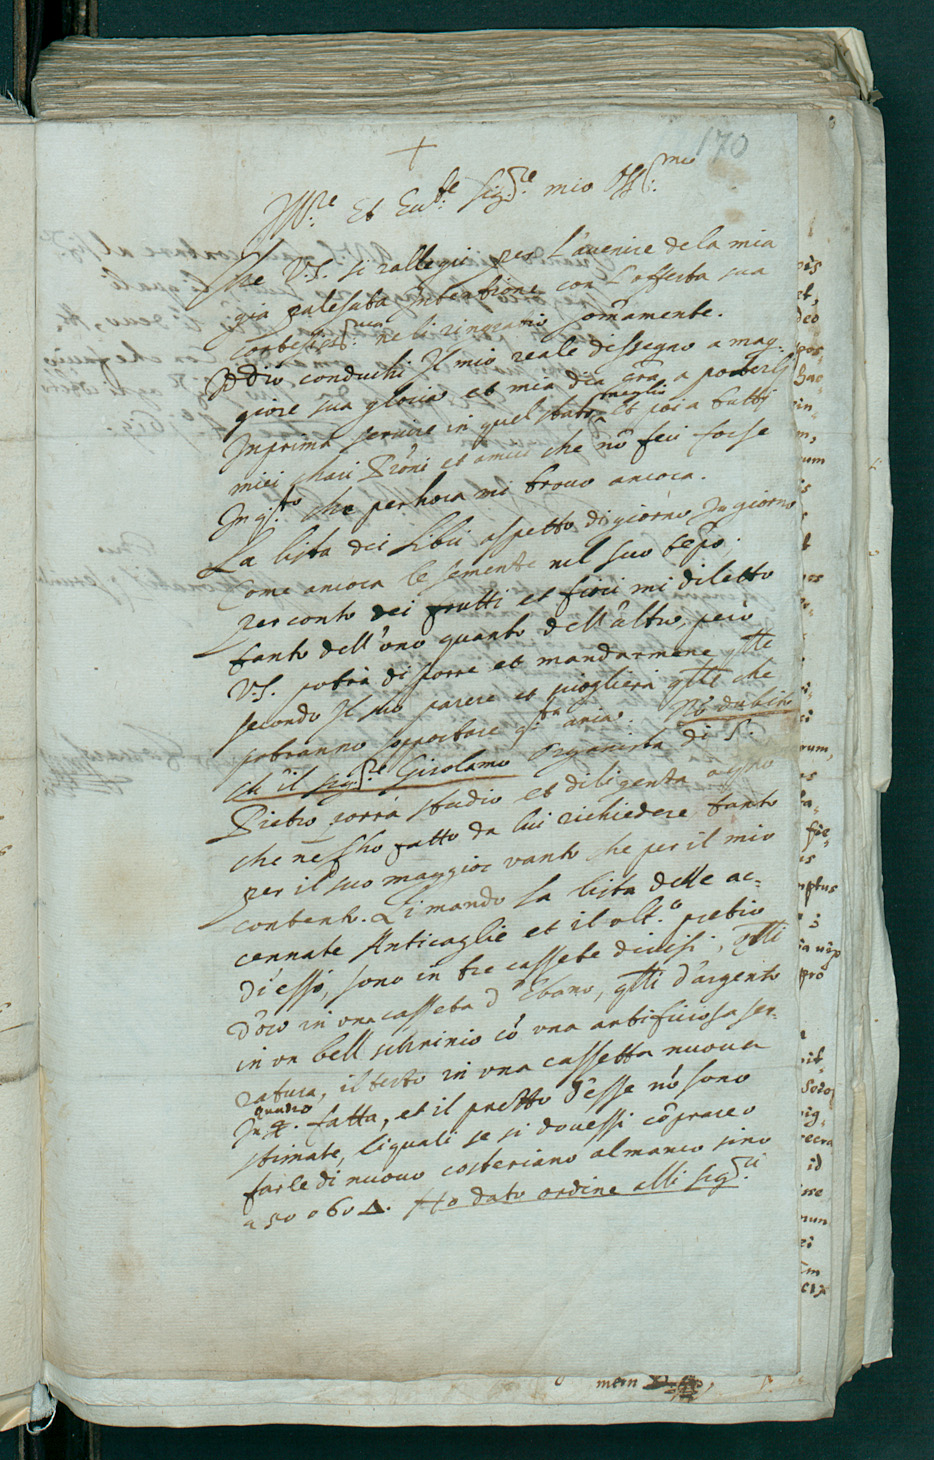 170
Ill.re Et Ecc.te Sig.re mio Oss.mo
Che V.S. si rallegri per l'avenire de la mia
già palesata Intentione con l'offerta sua
cortesiss.ma ne li ringratio som̃amente.
Iddio conduchi Il mio reale dessegno a mag-
giore sua gloria et mia di a grã a poterli
Inprima servire in quel stato meglio et poi a tutti
miei chari Proñi et amici che nõ feci forse
In q.sto che per hora mi trovo ancora.
La lista dei libri aspetto di giorno In giorno
Come ancora le semente nel suo tẽpo.
per conto dei frutti et fiori mi diletto
tanto dell'uno quanto dell'altro, però
V.S. potrà disporre et mandarmene q̃lli
secondo Il suo parere et sciogliera q̃lli che
potranno sopportare q.sta aria. Nõ dubito
ch'il sig.re Girolamo Organista di S.
Pietro porrà studio et diligenta a q̃no
che ne l'ho fatto da lui richiedere tanto
per il suo maggior vanto che per il mio
contento. Li mando la lista delle ac-
cennate Anticaglie et il ult.o pretio
di esso, sono in tre cassete divisi, q̃lli
d'oro in una casseta d'Ebano, q̃lli d'argento
in un bell schrinio cõ una artificiosa ser-
ratura, il resto in una cassetta nuova
In q. quadro fatta, et il prezzo d'esse nõ sono
stimate, li quali se si dovessi cõprare o
farle di nuovo costeriano almanco sino
a 50 o 60 Δ. Ho dato ordine alli Sig.ri
mem